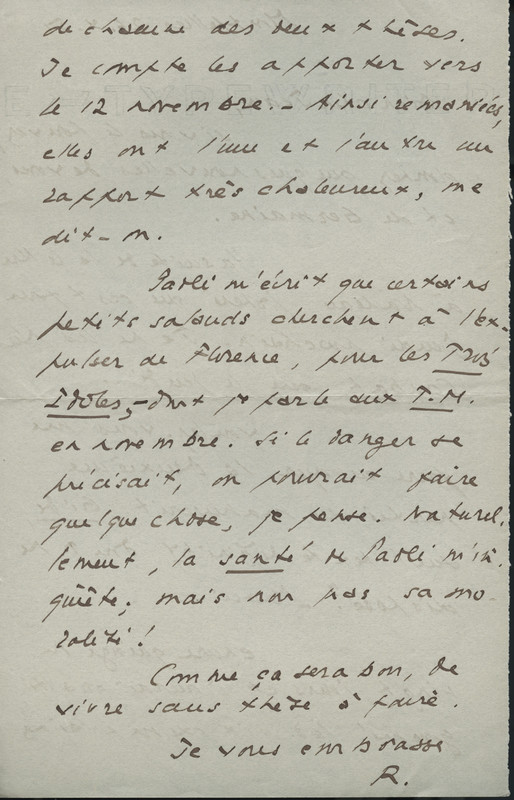 de chacune des deux thèses.
Je compte les apporter vers
le 12 novembre. – Ainsi remaniées,
elles ont l'une et l'autre un
rapport très chaleureux, me
dit-on.
Paoli m'écrit que certains
petits salauds cherchent à l'ex-
pulser de Florence, pour les Trois
Idoles, – dont je parle aux T.M.
en novembre. Si le danger se
précisait, on pourrait faire
quelque chose, je pense. Naturel-
lement, la santé de Paoli m'in-
quiète; mais non pas sa mo
ralité!
Comme ça sera bon, de
vivre sans thèse à faire.
Je vous embrasse
R.